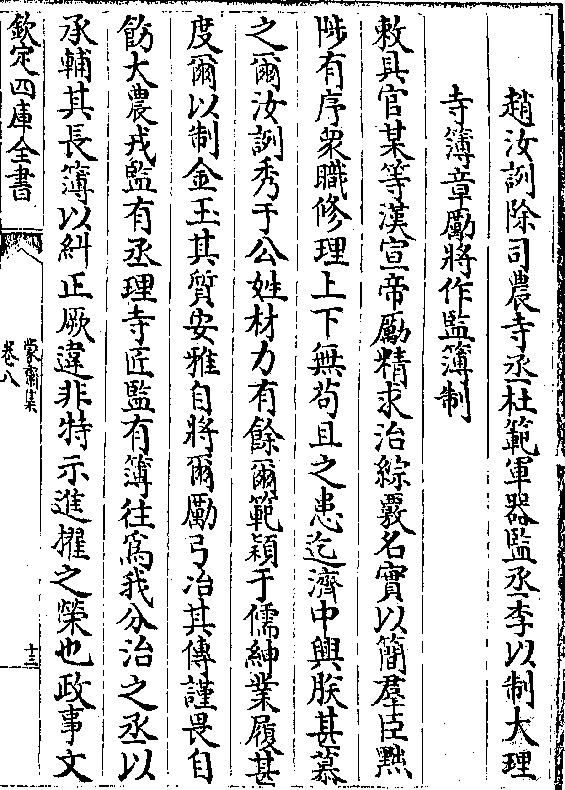 趙汝訓除司農寺丞杜範軍器監丞李以制大理
寺簿章勵將作監簿制
敕具官某等漢宣帝勵精求治綜覈名實以簡羣臣黜
陟有序衆職修理上下無苟且之患迄濟中興朕甚慕
之爾汝訓秀于公姓材力有餘爾範穎于儒紳業履甚
度爾以制金玉其質安雅自將爾勵弓冶其傳謹畏自
飭大農戎監有丞理寺匠監有簿往爲我分治之丞以
承輔其長簿以糾正厥違非特示進擢之榮也政事文
欽定四庫全書
蒙齋集
卷八
十三